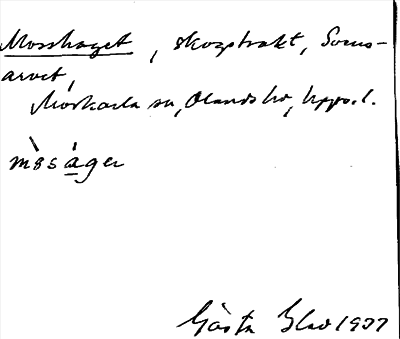 Mosshaget, skogstrakt, Socus-
arvet,
Morkarla sn, Olands hd, Upps. l.
mòságer
Gösta Blad 1977